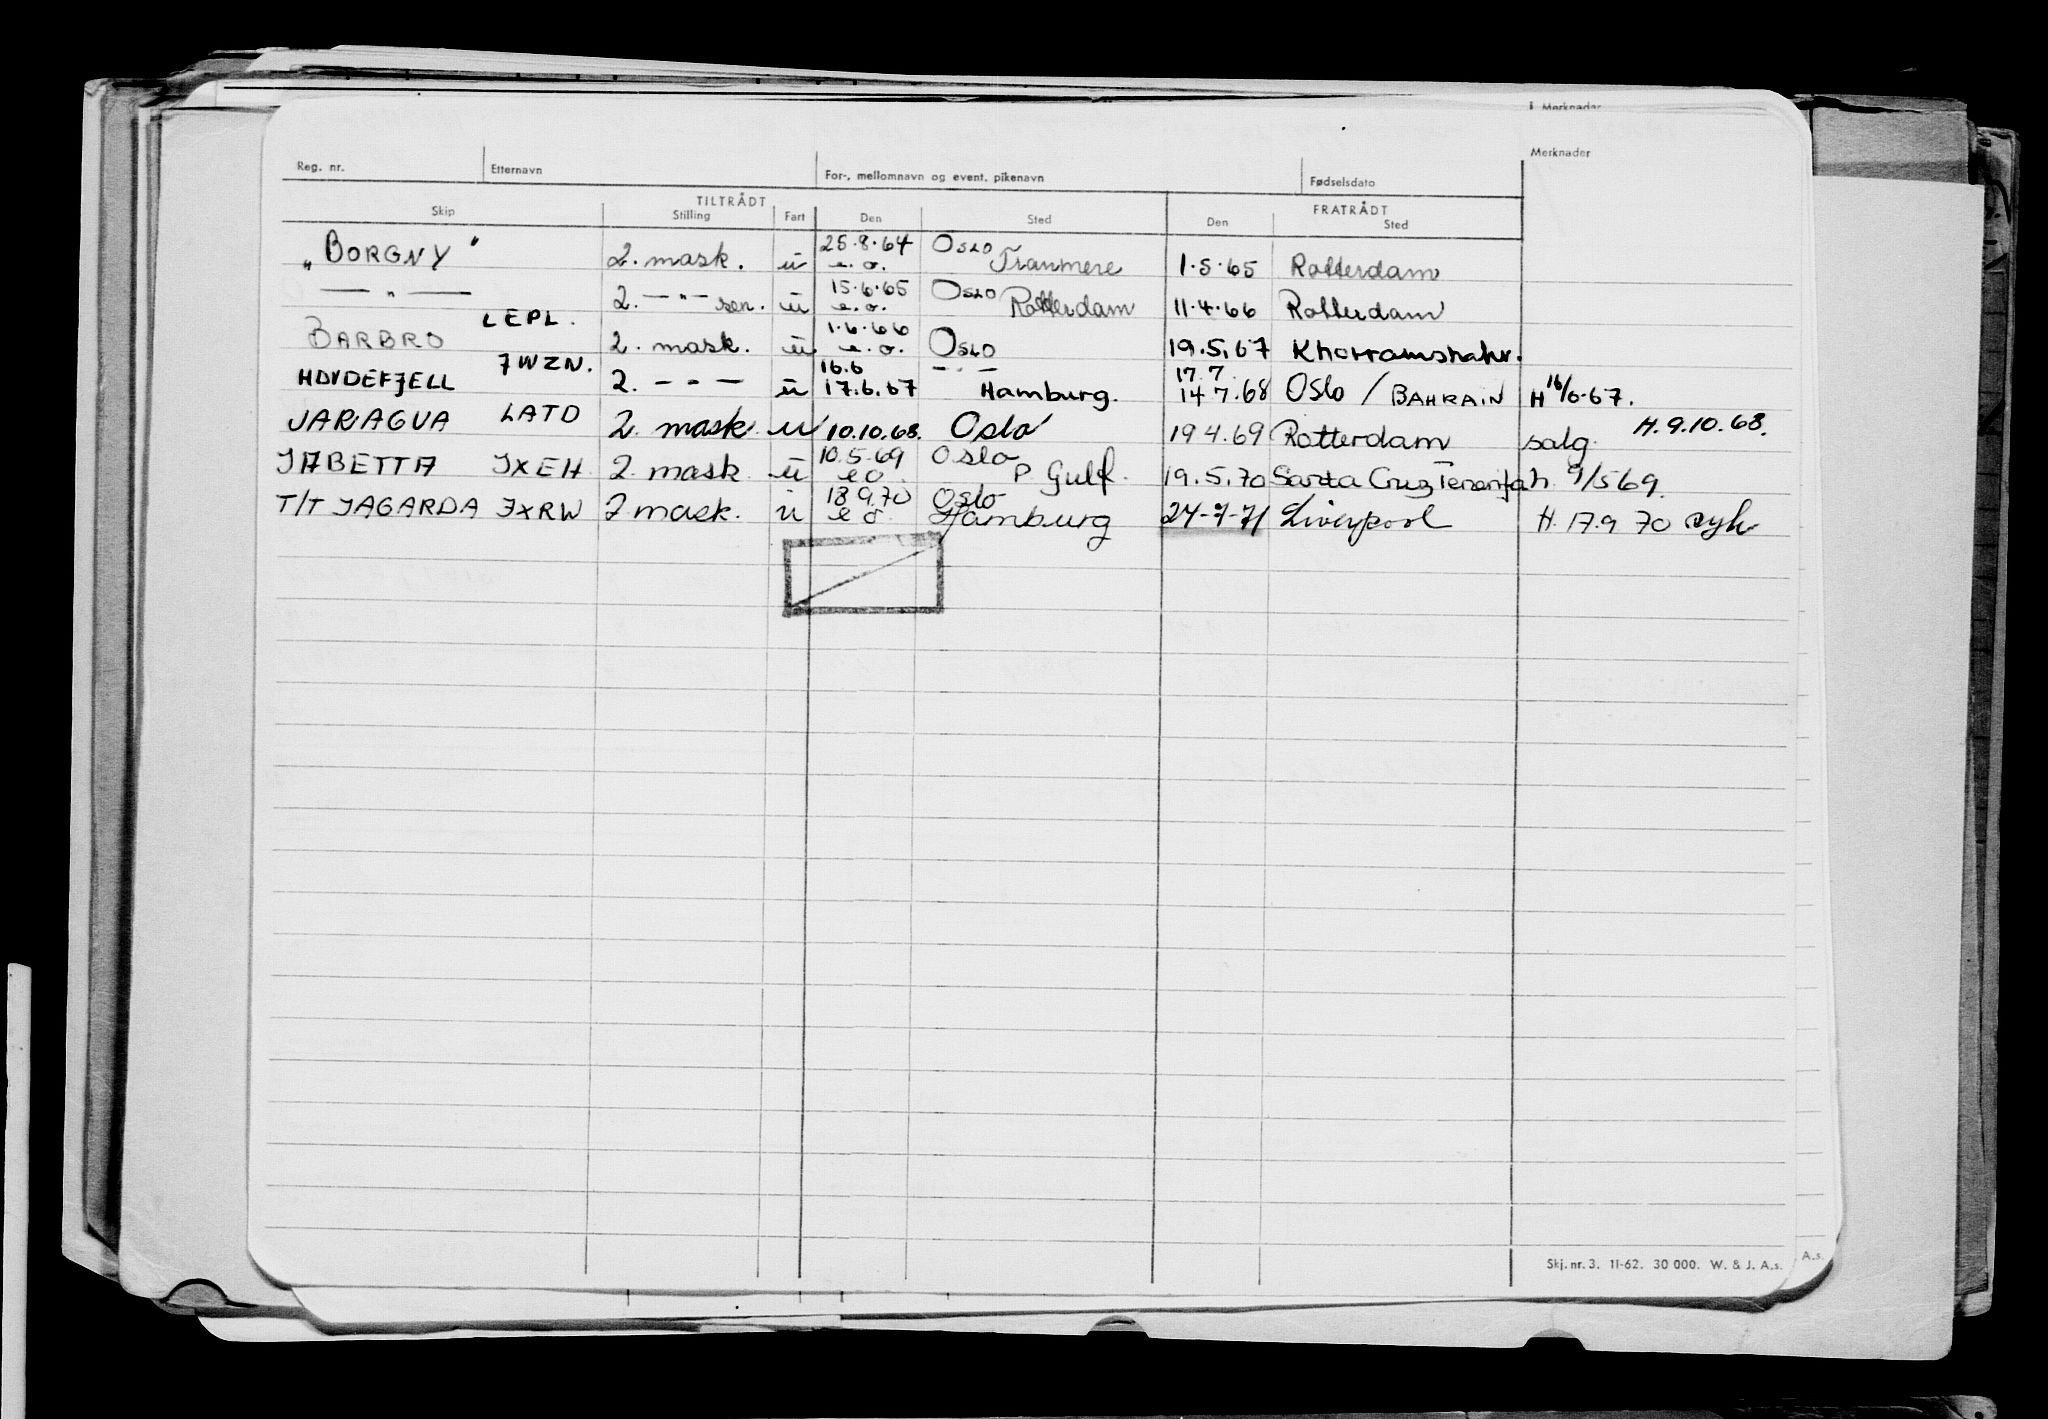 Merknader
Reg. nr. Etternavn For-, mellomnavn og event. pikenavn Fødselsdato Merknader
TILTRÅDT FRATRÅDT
Skip Stilling Fart Den Sted Den Sted
"BORGNY" 2. mask. u 25.8.64 e.o. OSLO Tranmere 1.5.65 Rotterdam
— " — 2. — " — sen. u 15.6.65 e.o. OSLO Rotterdam 11.4.66 Rotterdam
BARBRO LEPL. 2. mask. u 1.6.66 e.o. OSLO 19.5.67 Khorramshahr.
HOVDEFJELL JWZN. 2. — " — u 16.6 17.6.67 — " — Hamburg. 17.7. 14.7.68 Oslo / BAHRAIN H 16/6-67.
JARAGUA LATD 2. mask u 10.10.68. Oslo 19.4.69 Rotterdam salg. H.9.10.68.
JABETTA JXEH 2. mask u 10.5.69 e o. Oslo P Gulf. 19.5.70 Santa Cruz Tenerifa h. 9/5 69.
T/T JAGARDA JXRW 2 mask. u 18.9.70 e o. Oslo Hamburg 24-9-71 Liverpool H. 17.9 70 syk
Skj. nr. 3. 11-62. 30 000. W. & J. A.s. A.s.